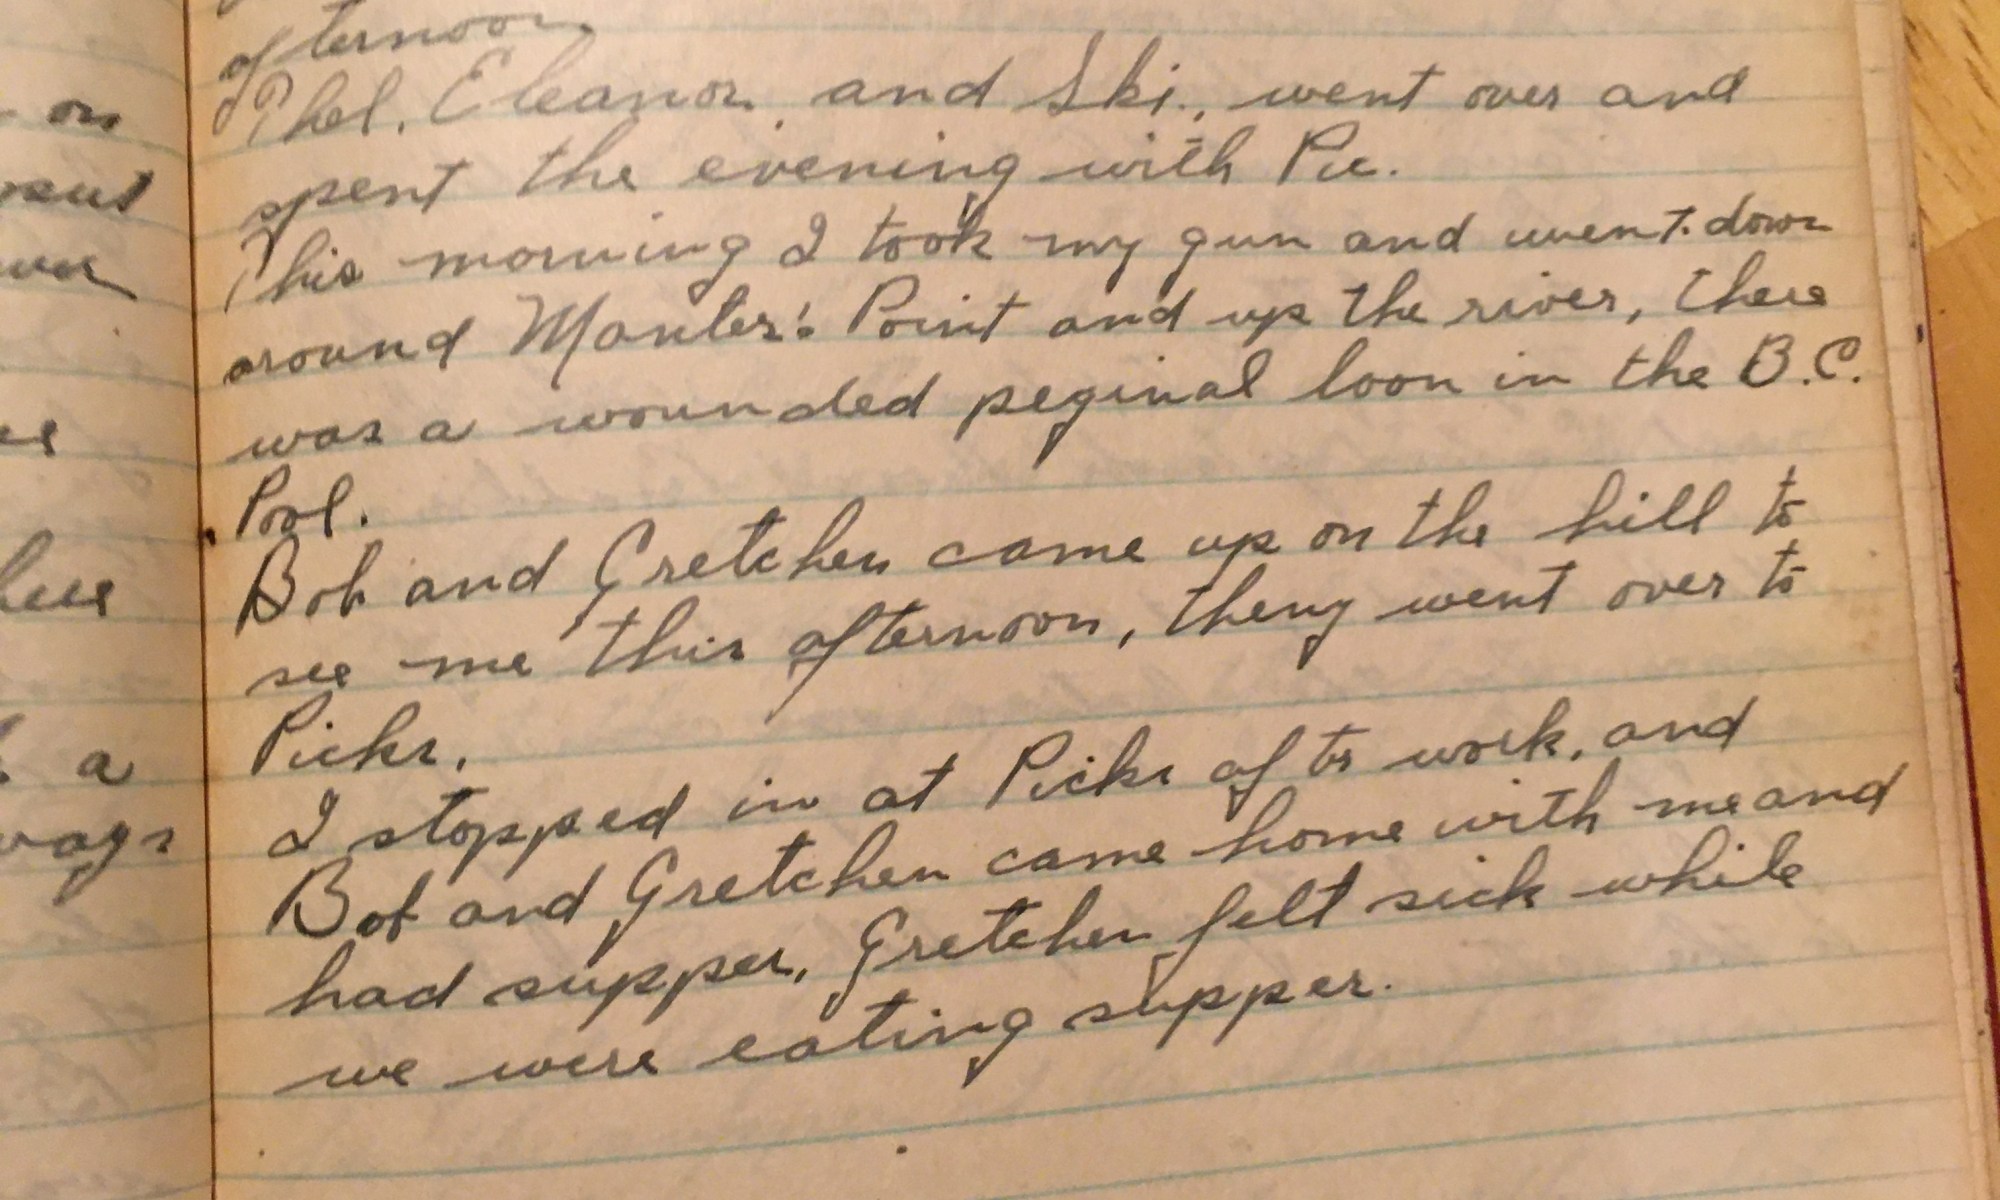 on
afternoon
Phel, Eleanor and Ski, went over and
spent the evening with Pic.
This morning I took my gun and went down
around Manter's Point and up the river, there
was a wounded peginal loon in the B.C.
Pool.
Bob and Gretchen came up on the hill to
see me this afternoon, theny went over to
Picks.
I stopped in at Picks after work, and
Bob and Gretchen came home with me and
had supper. Gretchen felt sick while
we were eating supper.
a